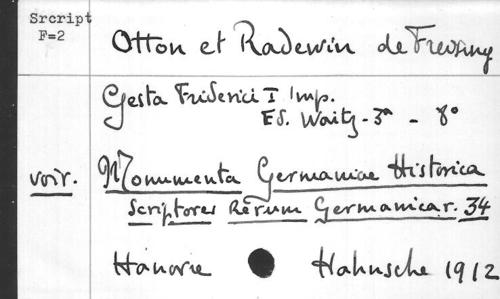 Srcript
F=2
Otton et Radewin de Freising
Gesta Friderici I Imp.
Ed. Waitz - 3a - 8°
voir. Monumenta Germaniae Historica
Scriptores Rerum Germanicar. 34
Hanovre Hahnsche 1912